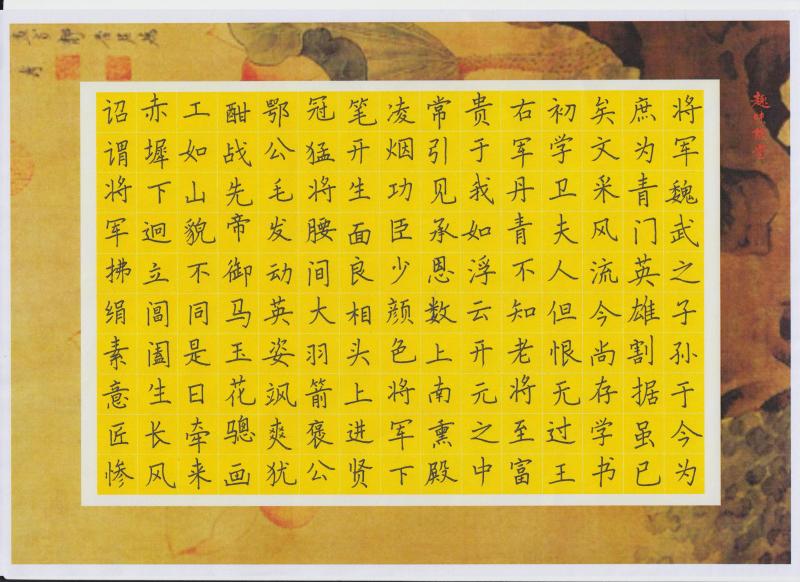 将军魏武之子孙于今为
庶为青门英雄割据虽已
矣文采风流今尚存学书
初学卫夫人但恨无过王
右军丹青不知老将至富
贵于我如浮云开元之中
常引见承恩数上南熏殿
凌烟功臣少颜色将军下
笔开生面良相头上进贤
冠猛将腰间大羽箭褒公
鄂公毛发动英姿飒爽犹
酣战先帝御马玉花骢画
工如山貌不同是日牵来
赤墀下迥立阊阖生长风
诏谓将军拂绢素意匠惨